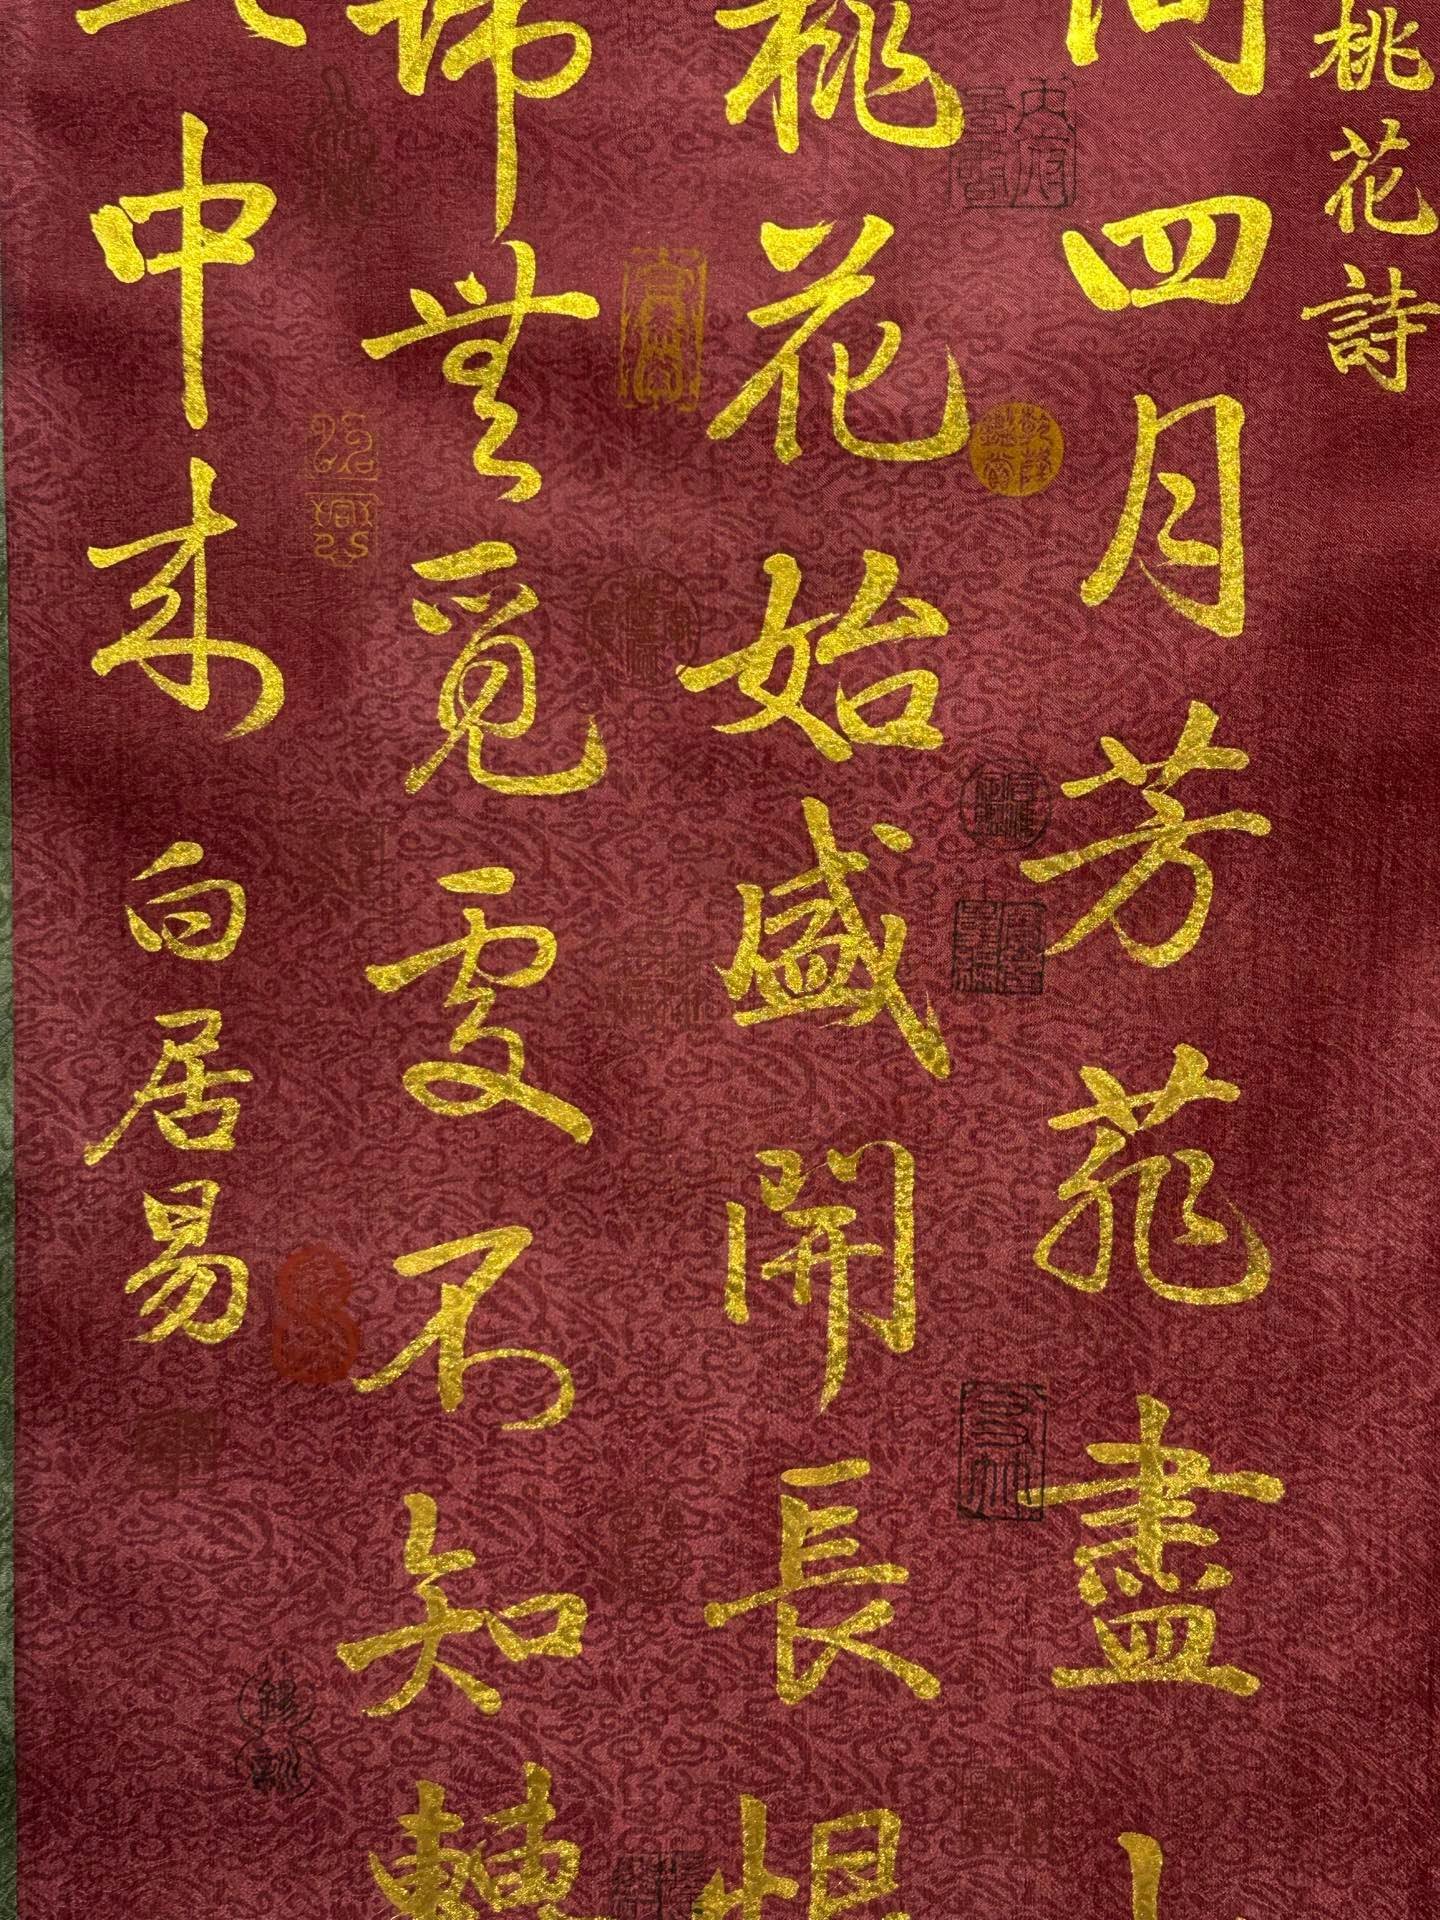 桃花詩
四月芳菲盡
桃花始盛開長恨
歸無覓處不知轉
中来
白居易